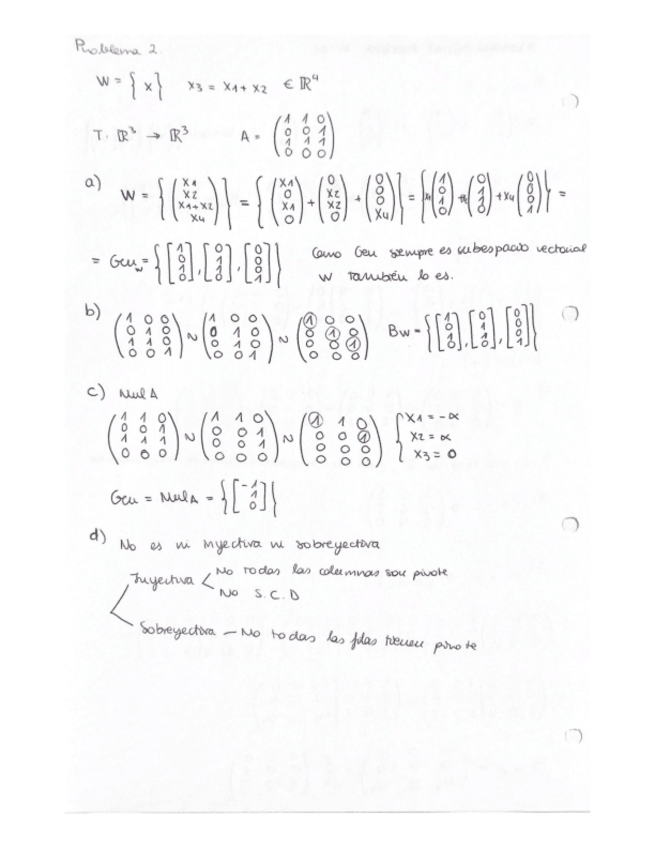 Problema 2.
W = { x } x3 = x1 + x2 ∈ ℝ⁴
T: ℝ³ → ℝ³ A = (1 1 0; 0 0 1; 1 1 1; 0 0 0)
a) W = {(x1; x2; x1+x2; x4)} = {(x1; 0; x1; 0) + (0; x2; x2; 0) + (0; 0; 0; x4)} = {x1(1; 0; 1; 0) + x2(0; 1; 1; 0) + x4(0; 0; 0; 1)} =
= Gen_w = {[1; 0; 1; 0], [0; 1; 1; 0], [0; 0; 0; 1]} Como Gen siempre es subespacio vectorial
W también lo es.
b) (1 0 0; 0 1 0; 1 1 0; 0 0 1) ~ (1 0 0; 0 1 0; 0 1 0; 0 0 1) ~ (1 0 0; 0 1 0; 0 0 1; 0 0 0) Bw = {[1; 0; 1; 0], [0; 1; 1; 0], [0; 0; 0; 1]}
c) Nul A
(1 1 0; 0 0 1; 1 1 1; 0 0 0) ~ (1 1 0; 0 0 1; 0 0 1; 0 0 0) ~ (1 1 0; 0 0 1; 0 0 0; 0 0 0) { x1 = -α
x2 = α
x3 = 0
Gen = Nul A = {[-1; 1; 0]}
d) No es ni inyectiva ni sobreyectiva
Inyectiva < No todas las columnas son pivote
No S.C.D
Sobreyectiva — No todas las filas tienen pivote